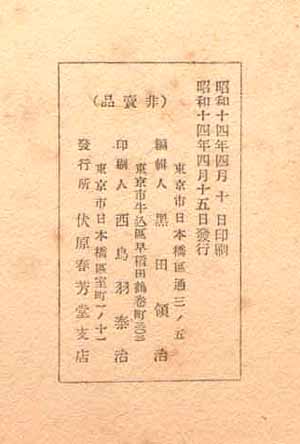 昭和十四年四月 十 日印刷
昭和十四年四月十五日發行
(非賣品)
東京市日本橋區通三ノ五
編輯人 黑田領治
東京市牛込區早稻田鶴卷町
印刷人 西鳥羽泰治
東京市日本橋區室町一ノ十一
發行所 伏原春芳堂支店